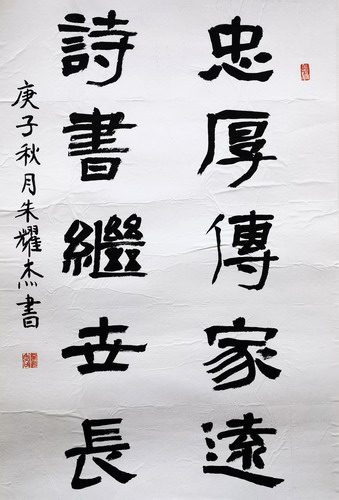 忠厚傳家遠
詩書繼世長
庚子秋月朱耀杰書